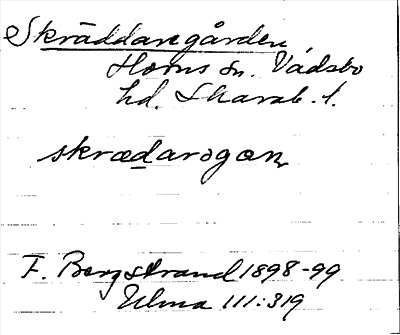 Skräddaregården,
Horns sn. Vadsbo
hd. Skarab. l.
skrædarogæn
F. Bergstrand 1898-99
Ulma 111:319